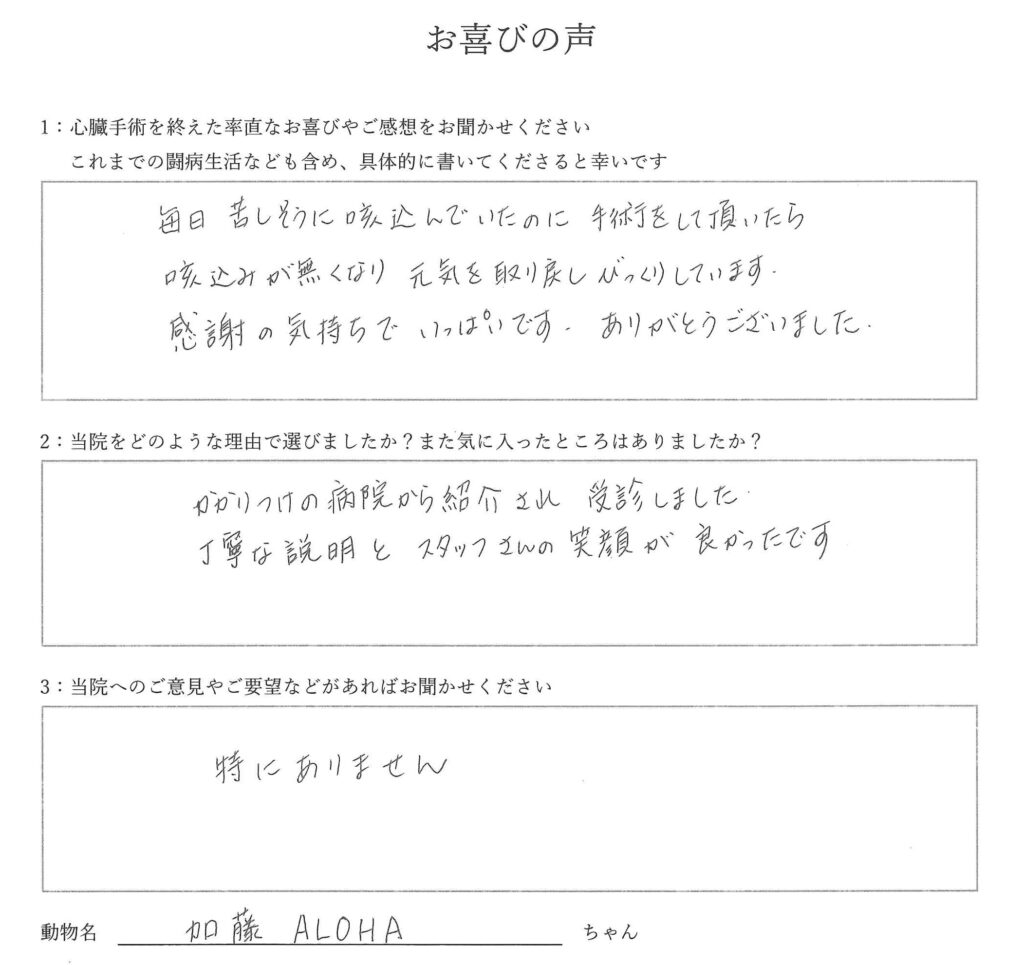 お喜びの声
1：心臓手術を終えた率直なお喜びやご感想をお聞かせください
これまでの闘病生活なども含め、具体的に書いてくださると幸いです
毎日 苦しそうに咳込んでいたのに 手術をして頂いたら
咳込みが無くなり 元気を取り戻しびっくりしています.
感謝の気持ちで いっぱいです. ありがとうございました.
2：当院をどのような理由で選びましたか？また気に入ったところはありましたか？
かかりつけの病院から紹介され 受診しました.
丁寧な説明と スタッフさんの笑顔が 良かったです
3：当院へのご意見やご要望などがあればお聞かせください
特にありません
動物名 加藤 ALOHA ちゃん